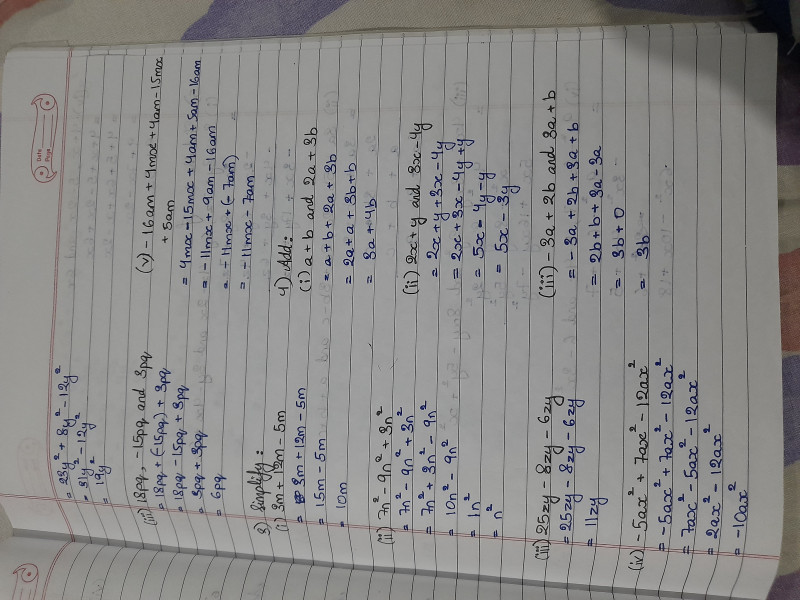 Date
Page
= 23y² + 8y² - 12y²
= 31y² - 12y²
= 19y²
(iii) 18pq, -15pq and 3pq
= 18pq + (-15pq) + 3pq
= 18pq - 15pq + 3pq
= 3pq + 3pq
= 6pq
3) Simplify:
(i) 3m + 12m - 5m
= 3m + 12m - 5m
= 15m - 5m
= 10m
(ii) 7n² - 9n² + 3n²
= 7n² - 9n² + 3n²
= 7n² + 3n² - 9n²
= 10n² - 9n²
= 1n²
= n²
(iii) 25zy - 8zy - 6zy
= 25zy - 8zy - 6zy
= 11zy
(iv) -5ax² + 7ax² - 12ax²
= -5ax² + 7ax² - 12ax²
= 7ax² - 5ax² - 12ax²
= 2ax² - 12ax²
= -10ax²
(v) - 16am + 4mx + 4am - 15mx
+ 5am
= 4mx - 15mx + 4am + 5am - 16am
= - 11mx + 9am - 16am
= - 11mx + (-7am)
= - 11mx - 7am
4) Add:
(i) a + b and 2a + 3b
= a + b + 2a + 3b
= 2a + a + 3b + b
= 3a + 4b
(ii) 2x + y and 3x - 4y
= 2x + y + 3x - 4y
= 2x + 3x - 4y + y
= 5x - 4y - y
= 5x - 3y
(iii) - 3a + 2b and 3a + b
= - 3a + 2b + 3a + b
= 2b + b + 3a - 3a
= 3b + 0
= 3b